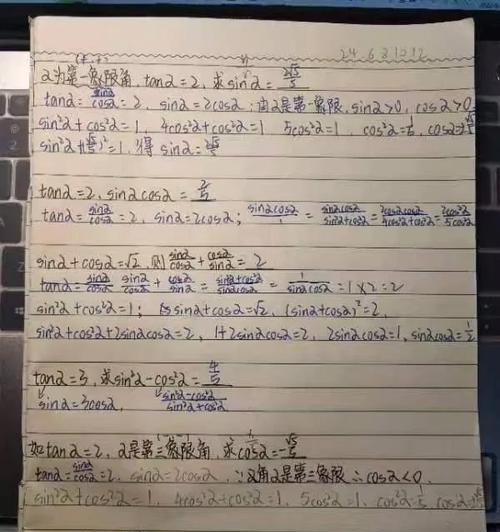 (+,+)
24.6.21.12.12
α为第一象限角, tanα=2, 求sinα=2√5/5
tanα=sinα/cosα=2, sinα=2cosα; 由α是第一象限, sinα>0, cosα>0
sin²α+cos²α=1, 4cos²α+cos²α=1 5cos²α=1, cos²α=1/5, cosα=√5/5
sin²α+(√5/5)²=1, 得 sinα=2√5/5
tanα=2, sinαcosα=2/5
tanα=sinα/cosα=2, sinα=2cosα; sinαcosα/1=sinαcosα/sin²α+cos²α=2cosαcosα/4cos²α+cos²α=2cos²α/5cos²α
sinα+cosα=√2, 则 sinα/cosα+cosα/sinα=2
tanα=sinα/cosα sinα/cosα+cosα/sinα=sin²α+cos²α/sinαcosα=1/sinαcosα=1×2=2
sin²α+cos²α=1; sinα+cosα=√2, (sinα+cosα)²=2,
sin²α+cos²α+2sinαcosα=2, 1+2sinαcosα=2, 2sinαcosα=1, sinαcosα=1/2
tanα=3, 求sin²α-cos²α=4/5
sinα=3cosα, sin²α-cos²α/sin²α+cos²α
如tanα=2, α是第三象限角, 求cosα=-√5/5
tanα=sinα/cosα=2, sinα=2cosα, ∵角α是第三象限∴cosα<0,
sin²α+cos²α=1, 4cos²α+cos²α=1, 5cos²α=1, cos²α=1/5, cosα